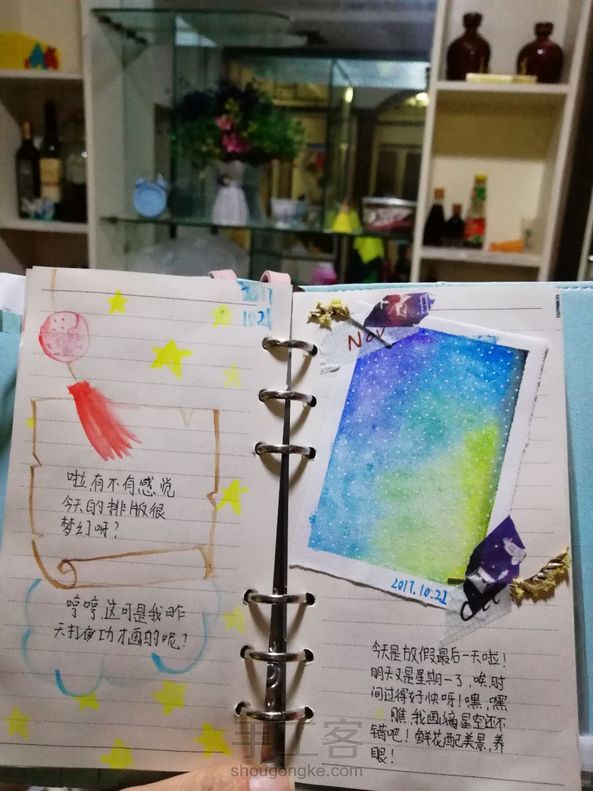 10.21
Nov
啦,有不有感觉
今天的排版很
梦幻呀?
哼哼,这可是我昨
天打夜功才画的呢?
2017.10.22
今天是放假最后一天啦!
明天又是星期一了,唉,时
间过得好快呀!嘿,嘿
瞧,我画编星空还不
错吧!鲜花配美景,养
眼!
手工客
shougongke.com